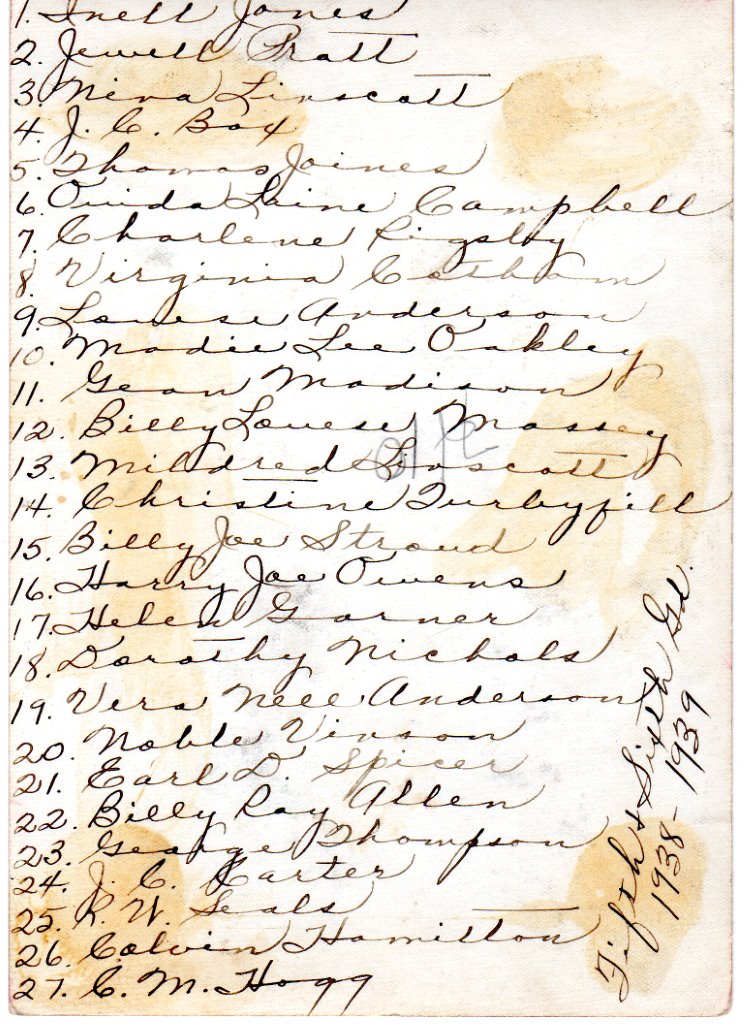 1. Inell Jones
2. Jewell Pratt
3. Nina Linscott
4. J. C. Box
5. Thomas Joines
6. Ouida Laine Campbell
7. Charlene Rigsby
8. Virginia Cotham
9. Louese Anderson
10. Madie Lee Oakley
11. Gean Madison
12. Billy Louese Massey
13. Mildred Linscott
14. Christine Turbyfill
15. Billy Joe Stroud
16. Harry Joe Owens
17. Helen Garner
18. Dorothy Nichols
19. Vera Nell Anderson
20. Noble Vinson
21. Earl D. Spicer
22. Billy Ray Allen
23. George Thompson
24. J. C. Carter
25. R. W. Seals
26. Calvin Hamilton
27. C. M. Hogg
Fifth & Sixth Gd.
1938-1939